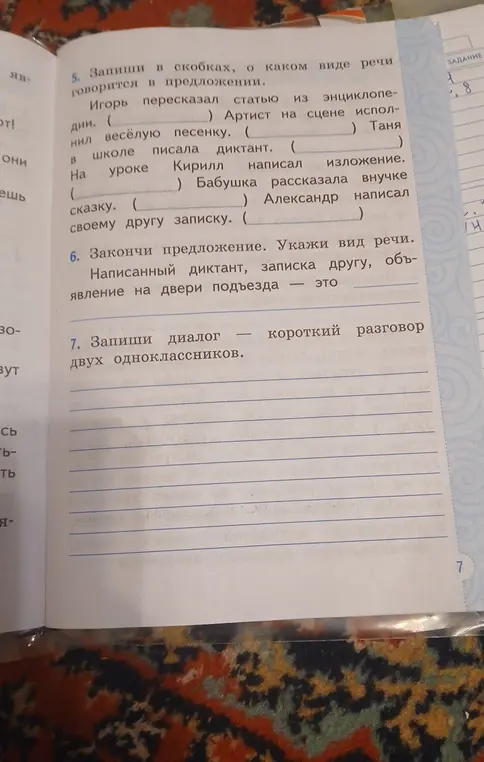 5. Запиши в скобках, о каком виде речи
говорится в предложении.
Игорь пересказал статью из энциклопе-
дии. (____________) Артист на сцене испол-
нил весёлую песенку. (____________) Таня
в школе писала диктант. (____________)
На уроке Кирилл написал изложение.
(____________) Бабушка рассказала внучке
сказку. (____________) Александр написал
своему другу записку. (____________)
6. Закончи предложение. Укажи вид речи.
Написанный диктант, записка другу, объ-
явление на двери подъезда — это ________
7. Запиши диалог — короткий разговор
двух одноклассников.
7
яв-
от!
они
ешь
зо-
вут
сь
ь-
ть
я-
ЗАДАНИЕ